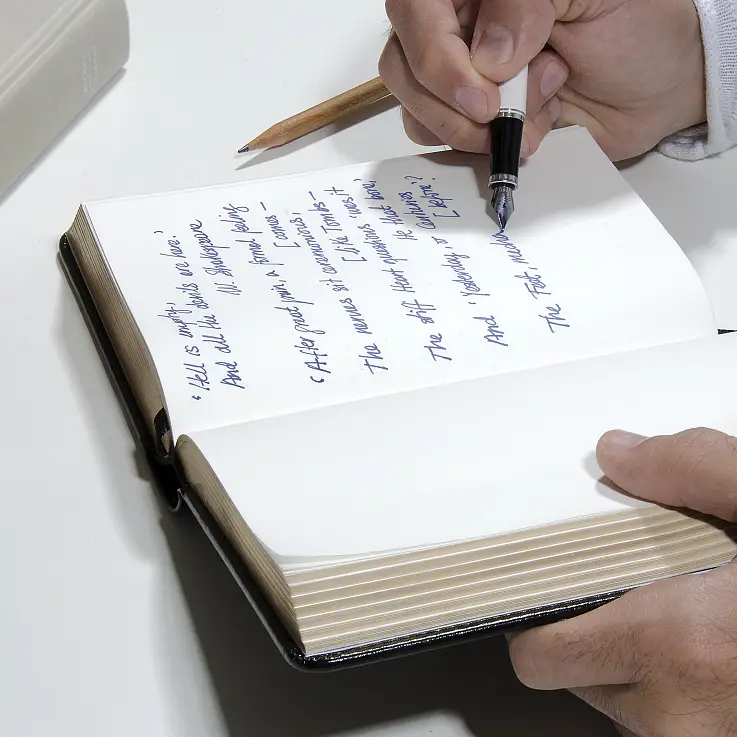 'Hell is empty,
And all the devils are here.'
W. Shakespeare
'After great pain, a formal feeling
[comes –
The nerves sit ceremonious,
[like Tombs –
The stiff Heart questions was it
He that bore,
And Yesterday, or Centuries
[before'?
The Feet, mecha